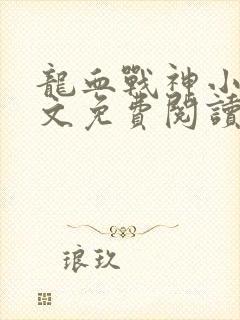 龍血戰神小
文免費閱讀
琅玖